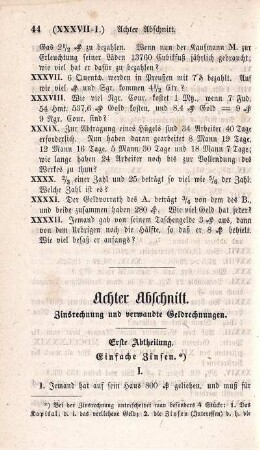 44 (XXXVII-I.) Achter Abschnitt.
Gas 2½ ₰ zu bezahlen. Wenn nun der Kaufmann M. zur
Erleuchtung seiner Läden 13760 Cubikfuß jährlich gebraucht;
wie viel hat er dafür zu bezahlen?
XXXVII. 6 Quentch. werden in Preußen mit 7 bezahlt. Auf
wie viel und Sgr. kommen 4½ Ctr?
XXXVIII. Wie viel Ngr. Cour. kostet 1 Mtz., wenn 7 Fud.
54 Hmt. 537,6 Gold kosten, und 8.4 Gold = 9
9 Ngr. Cour. sind?
XXXIX. Zur Abtragung eines Hügels sind 34 Arbeiter 40 Tage
erforderlich. Nun haben daran gearbeitet 8 Mann 19 Tage
12 Mann 16 Tage, 5 Mann 30 Tage und 18 Mann 7 Tage;
wie lange haben 24 Arbeiter noch bis zur Vollendung des
Werkes zu thun?
XXXX. ⅔ einer Zahl und 25 beträgt so viel wie ¾ der Zahl.
Welche Zahl ist es?
XXXXI. Der Geldvorrath des A. beträgt ¾ von dem des B.,
und beide zusammen haben 280 . Wie viel Geld hat jeder?
XXXXII. Jemand gab von seinem Taschengelde 3 aus, dann
von dem Uebrigen noch die Hälfte, so daß er 8 behielt.
Wie viel besaß er anfangs?
Achter Abschnitt.
Zinsrechnung und verwandte Geldrechnungen.
Erste Abtheilung.
Einfache Zinsen.*)
I.
1. Jemand hat auf sein Haus 800 geliehen, und muß für
*) Bei der Zinsrechnung unterscheidet man besonders 4 Stücke: 1. Das
Kapital, d. i. das verliehene Geld; 2. die Zinsen (Interessen) d. h. die